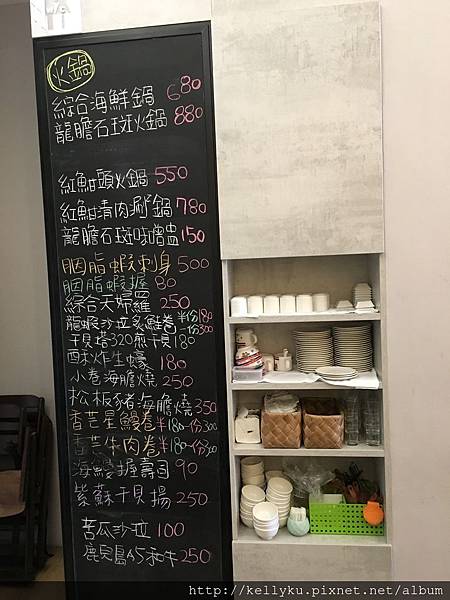 火鍋
綜合海鮮鍋 680
龍膽石斑火鍋 880
紅魽頭火鍋 550
紅魽清肉涮鍋 780
龍膽石斑味噌盅 150
胭脂蝦刺身 500
胭脂蝦握 80
綜合天婦羅 250
龍蝦沙拉炙鮭卷 半份180 一份300
干貝塔320煎干貝180
酥炸生蠔 180
小卷海膽燒 250
松板豬海膽燒 350
香芒星鰻卷 半180一份300
香芒牛肉卷 半180一份300
海鰻握壽司 90
紫蘇干貝揚 250
苦瓜沙拉 100
鹿兒島A5和牛 250
http://kellyku.pixnet.net/album